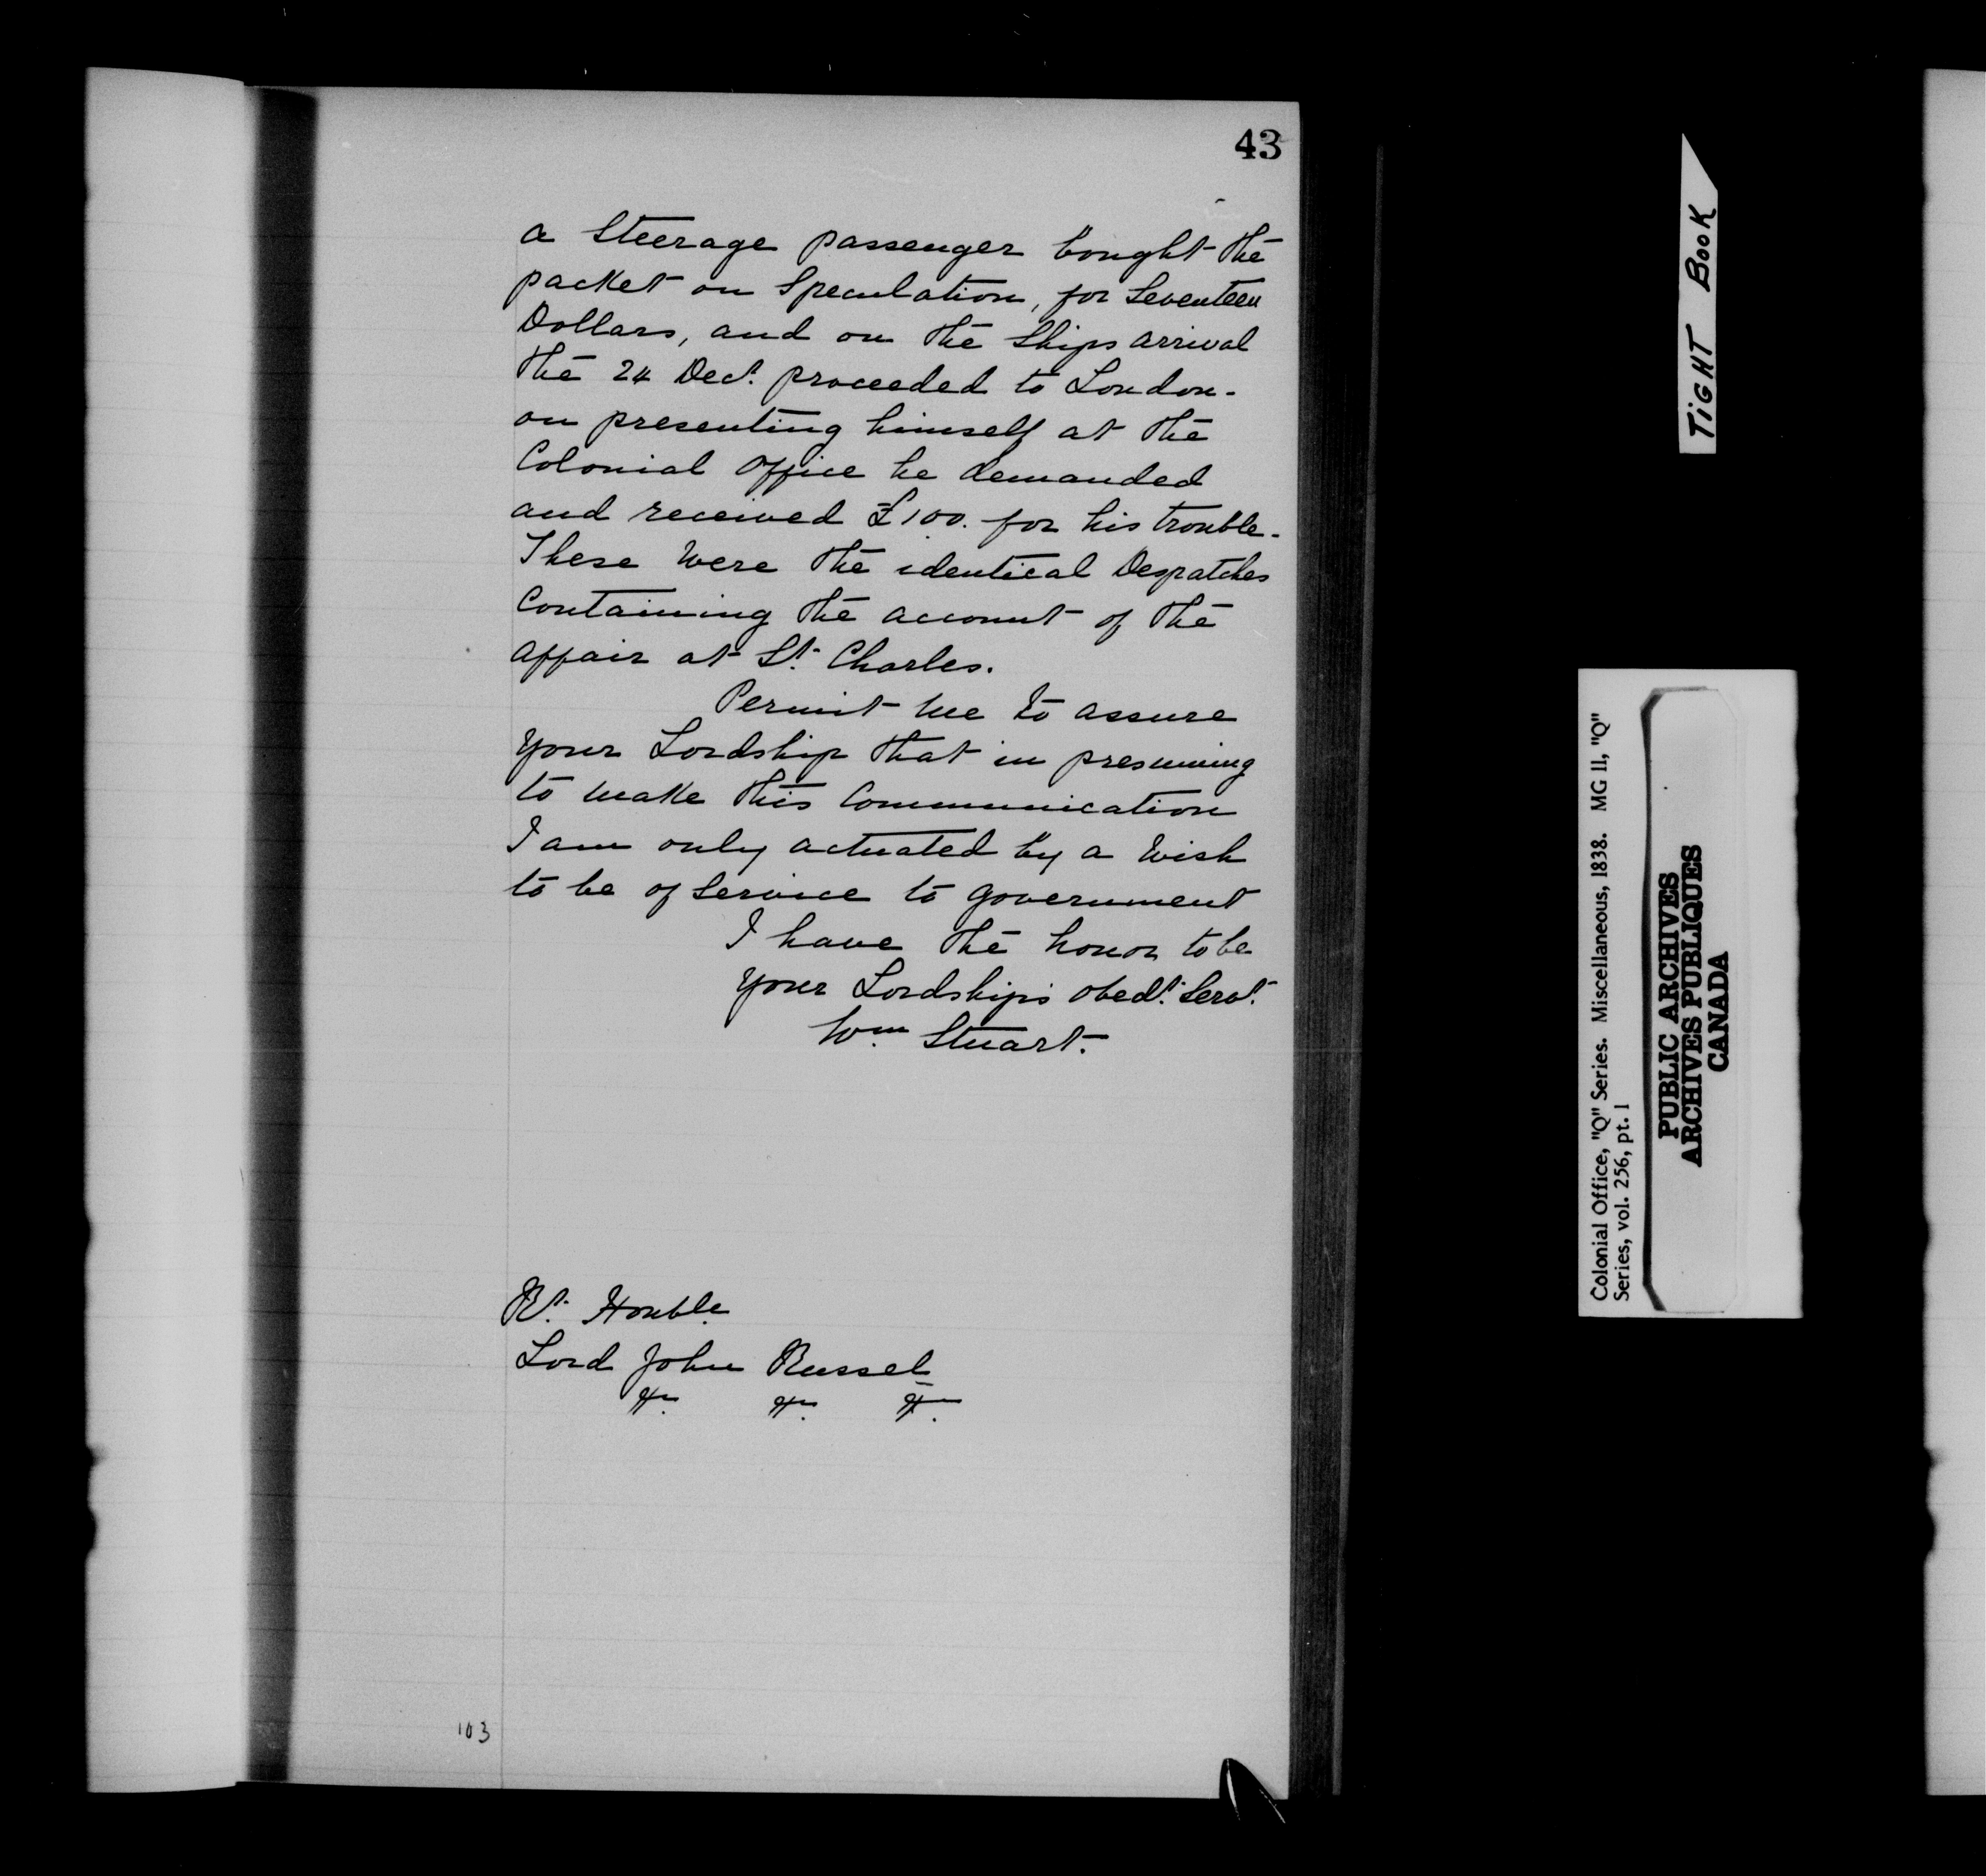 43
a Steerage passenger bought the
packet on Speculation, for Seventeen
Dollars, and on the Ships arrival
the 24 Decr. proceeded to London-
on presenting himself at the
Colonial Office he demanded
and received £100. for his trouble-
These Were the identical Despatches
Containing the account of the
affair at St. Charles.
Permit me to assure
Your Lordship that in presuming
to make this Communication
I am only actuated by a Wish
to be of Service to government
I have the honor to be
Your Lordships obedt. Servt.
Wm Stuart.
Rt. Honble.
Lord John Russel
&c. &c. &c.
103
TIGHT BOOK
Colonial Office, "Q" Series. Miscellaneous, 1838. MG 11, "Q"
Series, vol. 256, pt. 1
PUBLIC ARCHIVES
ARCHIVES PUBLIQUES
CANADA